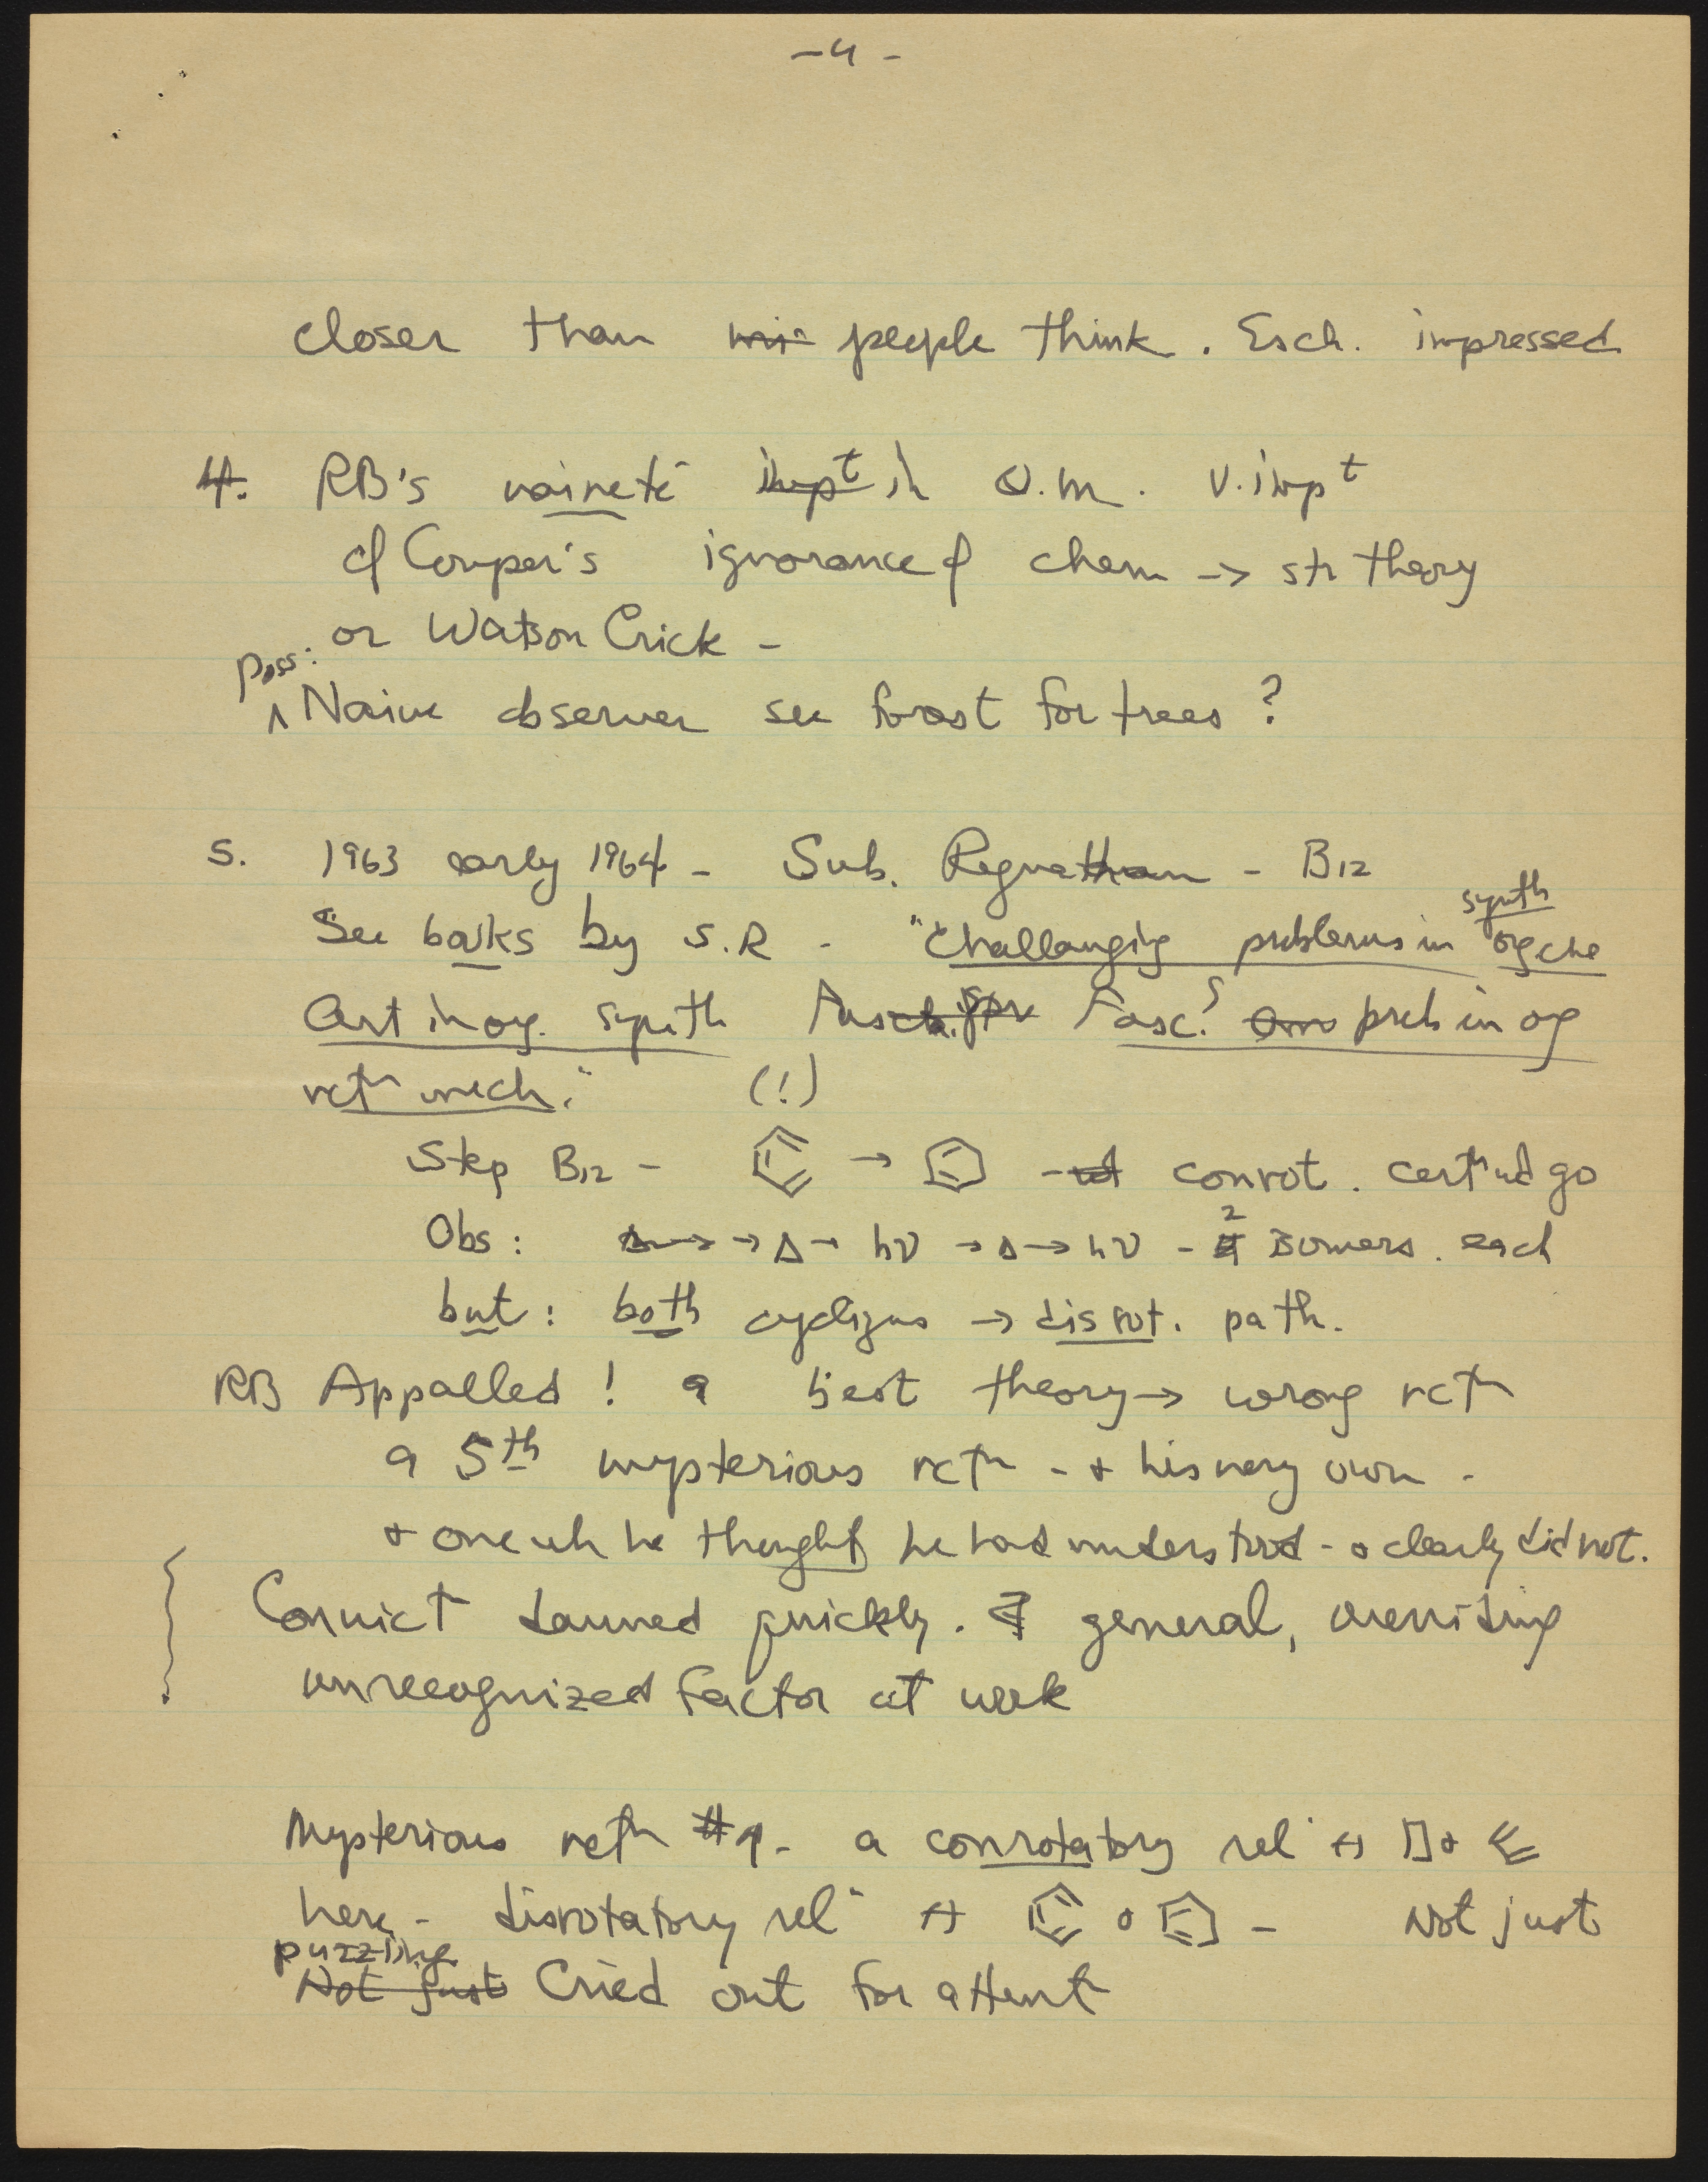 - 4 -
closer than people think. Esch. impressed
4. RB's naiveté impt in Q.M. v. impt
cf Couper's ignorance of chem → str theory
or Watson Crick -
poss:
^ Naive observer see forest for trees ?
5. 1963 early 1964 - Sub. Ragnathan - B12
See books by S.R - "Challenging problems in synth org che
Art in org. synth Fasc. prob in org
rctn mech." (!)
Step B12 - → - conrot. certn'd go
Obs : → Δ → hν → Δ → hν - 2 isomers. each
but : both cyclizns → disrot. path.
RB Appalled ! a best theory → wrong rctn
a 5th mysterious rctn - + his very own -
+ one wh he thought he had understood - + clearly did not.
Convict dawned quickly. ∃ general, overriding
unrecognized factor at work
Mysterious rctn #4 - a conrotatory reln ↔ +
here - disrotatory reln ↔ + - Not just
puzzling
Not just Cried out for attent